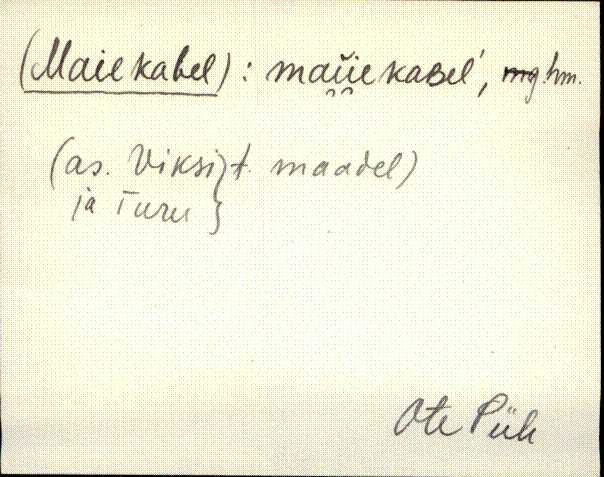 (Maiekabel) : mai̯i̯ekaʙel', mg. hm.
(as. Viksi } t. maadel)
ja Turu }
Ote Püh